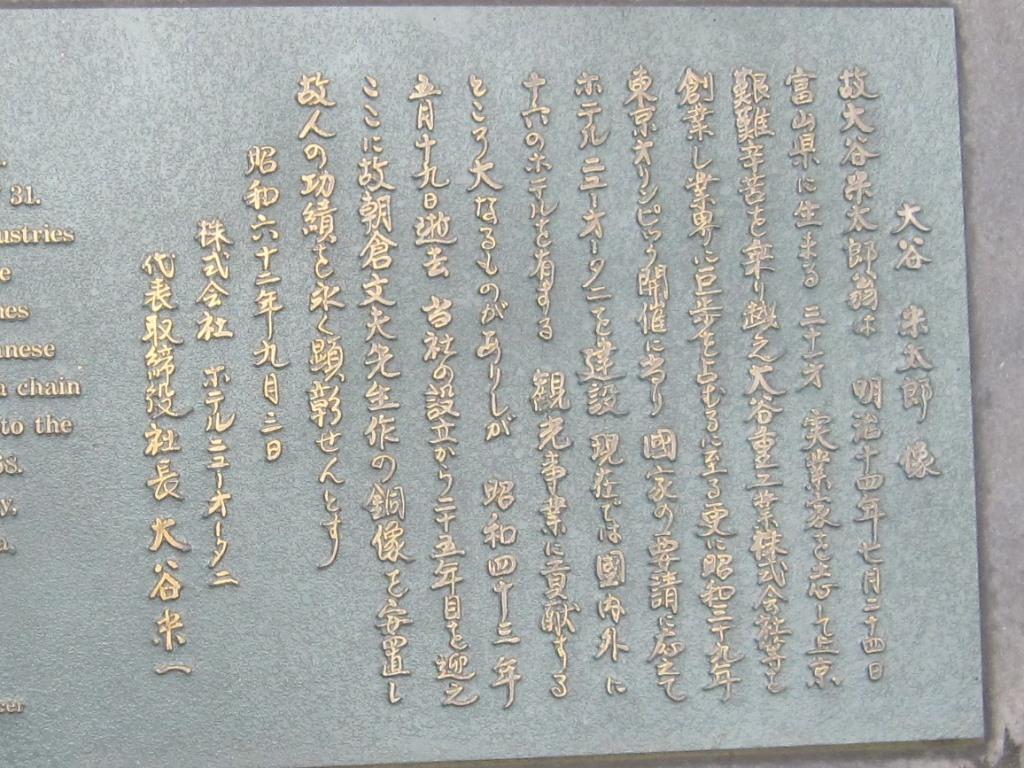 大谷 米太郎 像
故大谷米太郎翁は 明治十四年七月二十四日
富山県に生まる 三十一才 実業家を志して上京
艱難辛苦を乗り越え大谷重工業株式会社等を
創業し業界に巨歩を占むるに至る更に昭和三十九年
東京オリンピック開催に当り 國家の要請に応えて
ホテル ニューオータニを建設 現在では國内外に
十六のホテルを有する 観光事業に貢献する
ところ大なるものがありしが 昭和四十三年
五月十九日逝去 当社の設立から二十五年目を迎え
ここに故朝倉文夫先生作の銅像を安置し
故人の功績を永く顕彰せんとす
昭和六十二年九月三日
株式会社 ホテルニューオータニ
代表取締役社長 大谷米一
31.
ustries
e
nes
anese
chain
to the
8.
y.
a.
cer